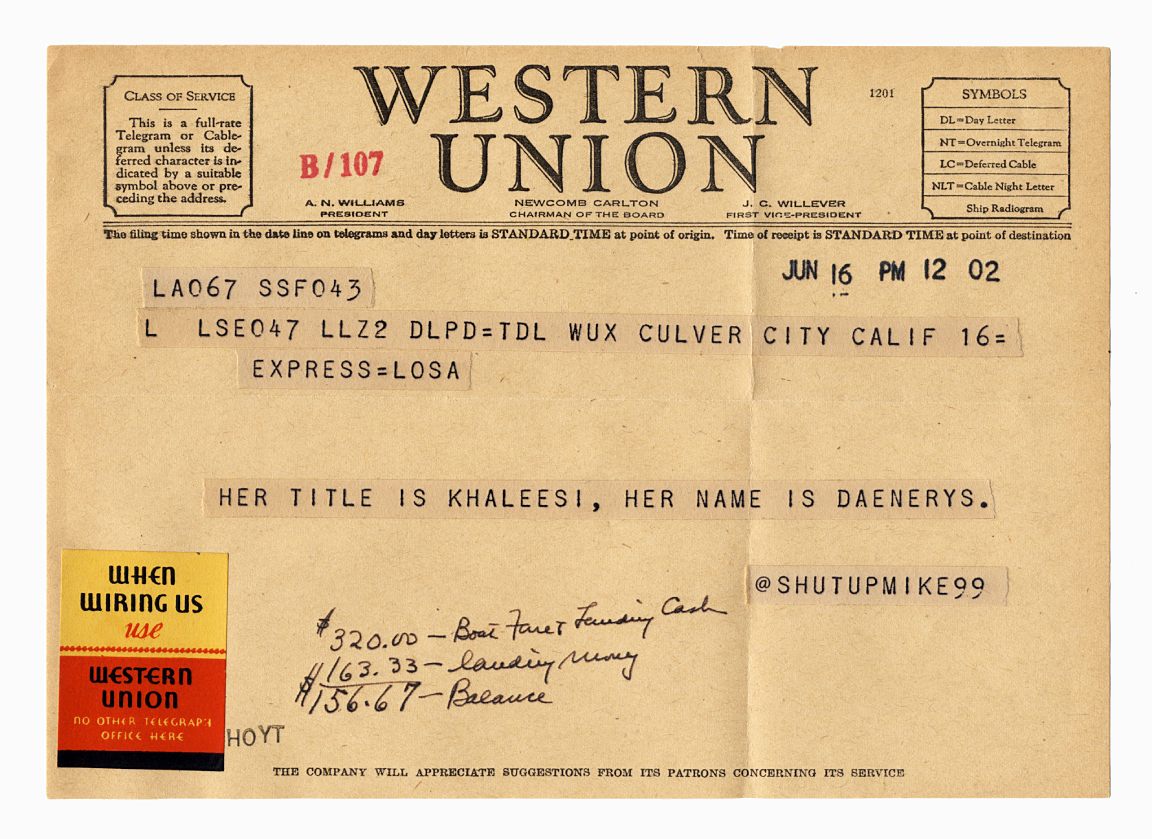 WESTERN
UNION
1201
CLASS OF SERVICE
This is a full-rate
Telegram or Cable-
gram unless its de-
ferred character is in-
dicated by a suitable
symbol above or pre-
ceding the address.
B/107
A. N. WILLIAMS
PRESIDENT
NEWCOMB CARLTON
CHAIRMAN OF THE BOARD
J. C. WILLEVER
FIRST VICE-PRESIDENT
SYMBOLS
DL=Day Letter
NT=Overnight Telegram
LC=Deferred Cable
NLT=Cable Night Letter
Ship Radiogram
The filing time shown in the date line on telegrams and day letters is STANDARD TIME at point of origin. Time of receipt is STANDARD TIME at point of destination
JUN 16 PM 12 02
LA067 SSF043
L LSE047 LLZ2 DLPD=TDL WUX CULVER CITY CALIF 16=
EXPRESS=LOSA
HER TITLE IS KHALEESI, HER NAME IS DAENERYS.
@SHUTUPMIKE99
$320.00 – Boat Fare & Landing Cash
$163.33 – landing money
$156.67 – Balance
WHEN
WIRING US
use
WESTERN
UNION
NO OTHER TELEGRAPH
OFFICE HERE
HOYT
THE COMPANY WILL APPRECIATE SUGGESTIONS FROM ITS PATRONS CONCERNING ITS SERVICE